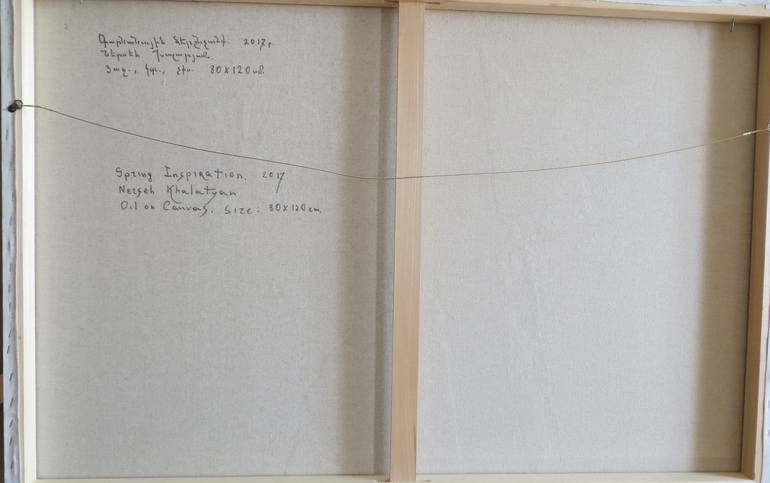 Գարնանային ներշնչանք 2017թ
Ներսեհ Խալաթյան
Յուղ., կտ., չխ. 80x120սմ.
Spring Inspiration. 2017
Nerseh Khalatyan
Oil on Canvas, Size: 80x120cm.